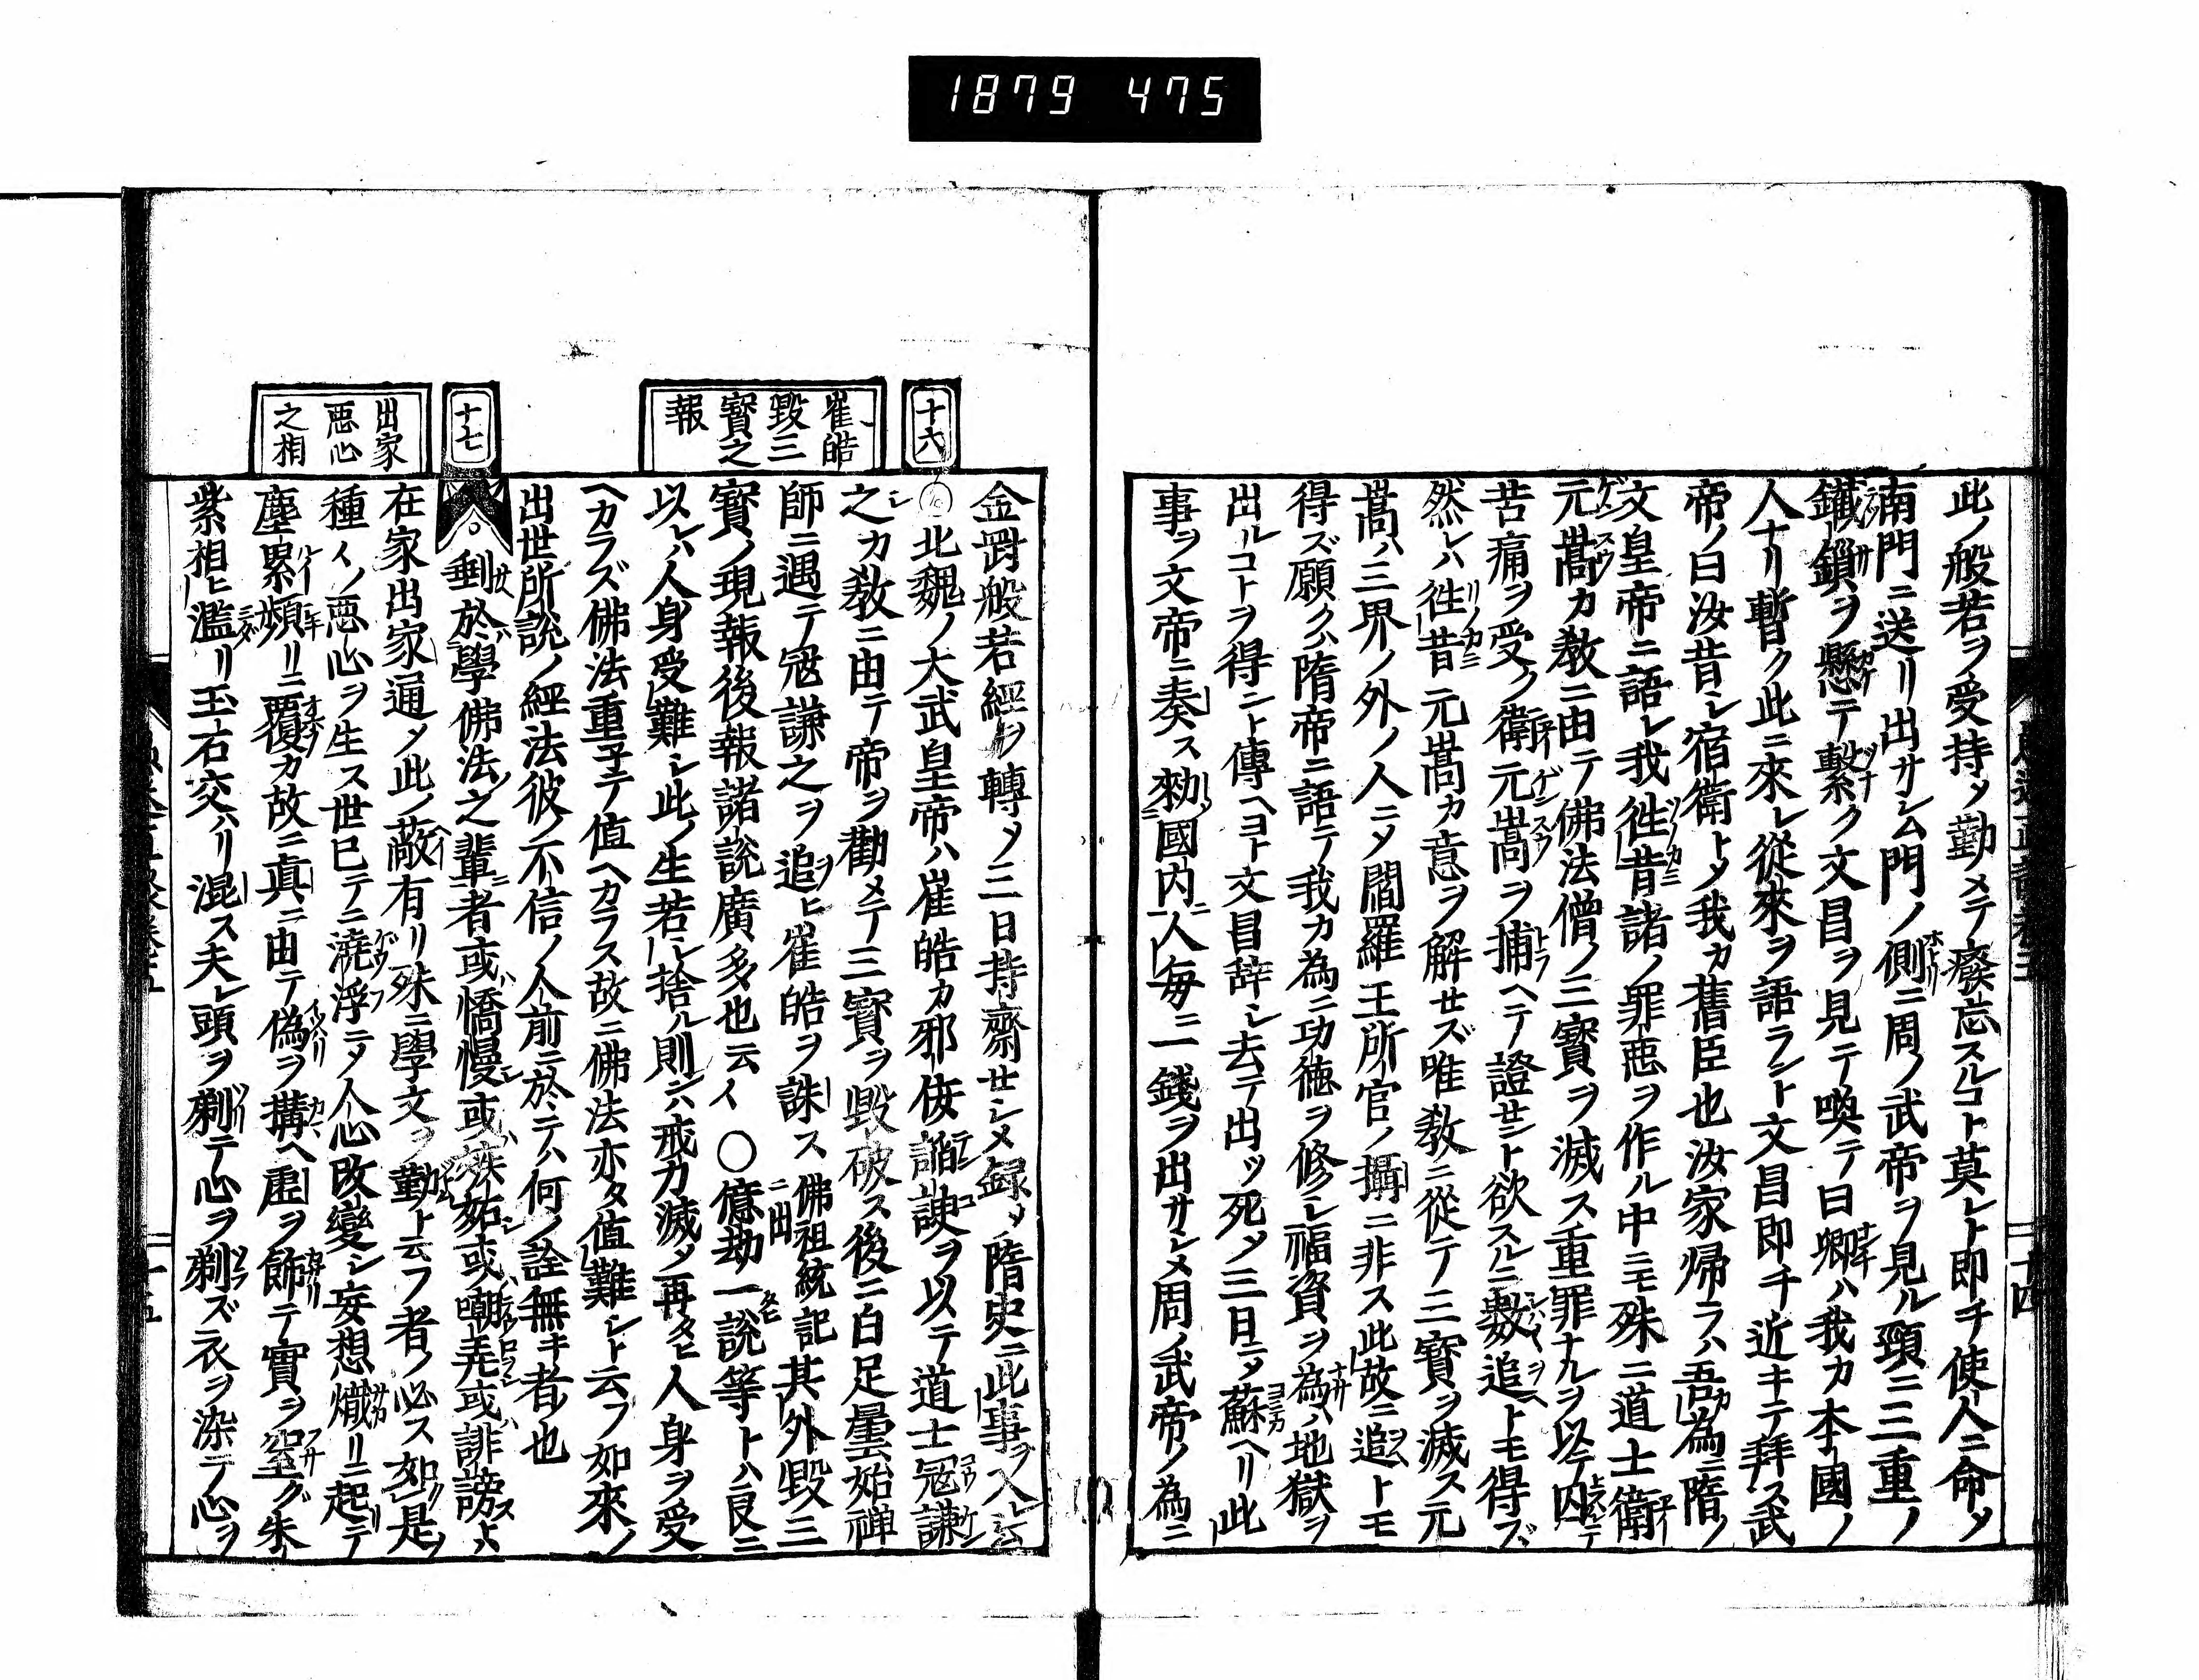 1879 475
此ノ般若ヲ受持メ勤メテ癈忘スルコト莫レト即チ使人ニ命メ
南門ニ送リ出サシム門ノ側ニ周ノ武帝ヲ見ル頸ニ三重ノ
鐵鎖ヲ懸テ繫ク文昌ヲ見テ喚テ曰卿ハ我カ本國ノ
人ナリ暫ク此ニ來レ從來ヲ語ラント文昌即チ近キテ拜ス武
帝ノ曰汝昔シ宿衛トメ我カ舊臣也汝家帰ラハ吾カ為ニ隋ノ
文皇帝ニ語レ我徃昔諸ノ罪悪ヲ作ル中ニモ殊ニ道士衛
元嵩カ教ニ由テ佛法僧ノ三寳ヲ滅ス重罪ナルヲ以テ囚
苦痛ヲ受ク衛元嵩ヲ捕ヘテ證セント欲スルニ數追トモ得ズ
然レハ徃昔元嵩カ意ヲ解セズ唯教ニ從テ三寳ヲ滅ス元
嵩ハ三界ノ外ノ人ニメ閻羅王所官ノ攝ニ非ス此故ニ追トモ
得ズ願クハ隋帝ニ語テ我カ為ニ功徳ヲ修シ福資ヲ為ハ地獄ヲ
出ルコトヲ得ニト傳ヘヨト文昌辞シ去テ出ッ死メ三日ニメ蘇ヘリ此
事ヲ文帝ニ奏ス勑國内人毎ニ一錢ヲ出サシメ周ノ武帝ノ為ニ
十六
崔皓
毀三
寳之
報
十七
出家
悪心
之相
金罸般若經ヲ轉メ三日持齋セシメ録メ隋史ニ此事ヲ入ト云
北魏ノ大武皇帝ハ崔皓カ邪侫諂諛ヲ以テ道士冦謙
之カ教ニ由テ帝ヲ勸メテ三寳ヲ毀破ス後ニ白足曇始禅
師ニ遇テ冦謙之ヲ追ヒ崔皓ヲ誅ス佛祖統記ニ出其外毀三
寳ノ現報後報諸説廣多也云々 ○億劫一説等トハ良ニ
以レハ人身受難シ此ノ生若シ捨ル則ンハ戒力滅メ再ヒ人身ヲ受
ヘカラズ佛法重子テ値ヘカラス故ニ佛法亦タ値難シト云フ如來ノ
出世所説ノ經法彼ノ不信ノ人前ニ於テハ何ノ詮無キ者也
。剉於學佛法之輩者或憍慢或嫉妬或嘲弄或誹謗スト
在家出家通メ此ノ蔽有リ殊ニ學文ヲ勤ト云フ者ノ必ス如是
種々ノ悪心ヲ生ス世已テニ澆浮ニメ人心改變シ妄想熾リニ起テ
塵累頻リニ覆カ故ニ真ニ由テ偽ヲ搆ヘ虚ヲ飾テ實ヲ窒グ朱
紫相ヒ濫リ玉石交ハリ混ス夫レ頭ヲ剃テ心ヲ剃ズ衣ヲ染テ心ヲ